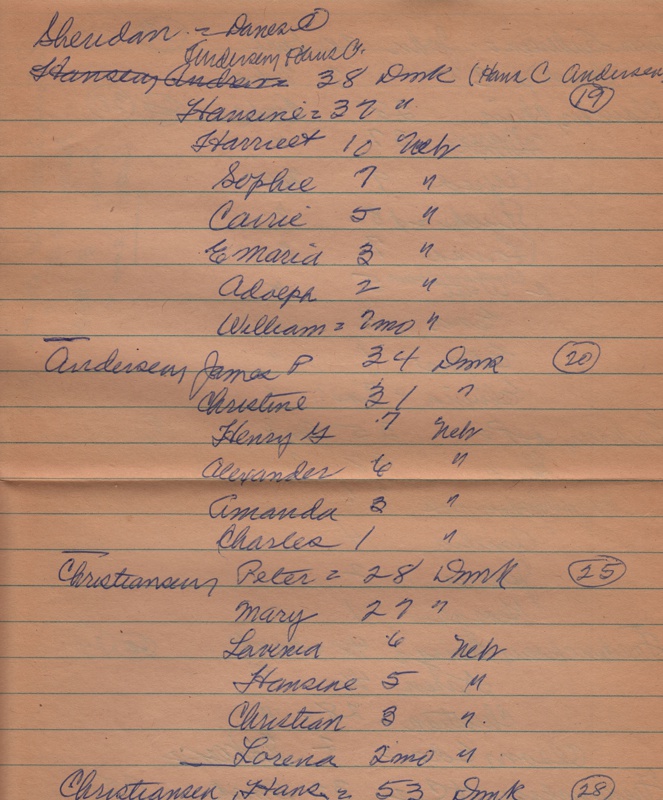 Sheridan = Danes
Andersen, Hans C.
Hansen, Andrew 38 Dmk (Hans C Andersen
19
Hansine = 37 "
Harriet 10 Neb
Sophie 7 "
Carrie 5 "
E Maria 3 "
Adolph 2 "
William = 7mo "
Andersen, James P 34 Dmk 20
Christine 31 "
Henry G 7 Neb
Alexander 6 "
Amanda 3 "
Charles 1 "
Christiansen, Peter = 28 Dmk 25
Mary 27 "
Lavinia 6 Neb
Hansine 5 "
Christian 3 "
Lorena 2mo "
Christiansen, Hans = 53 Dmk 28